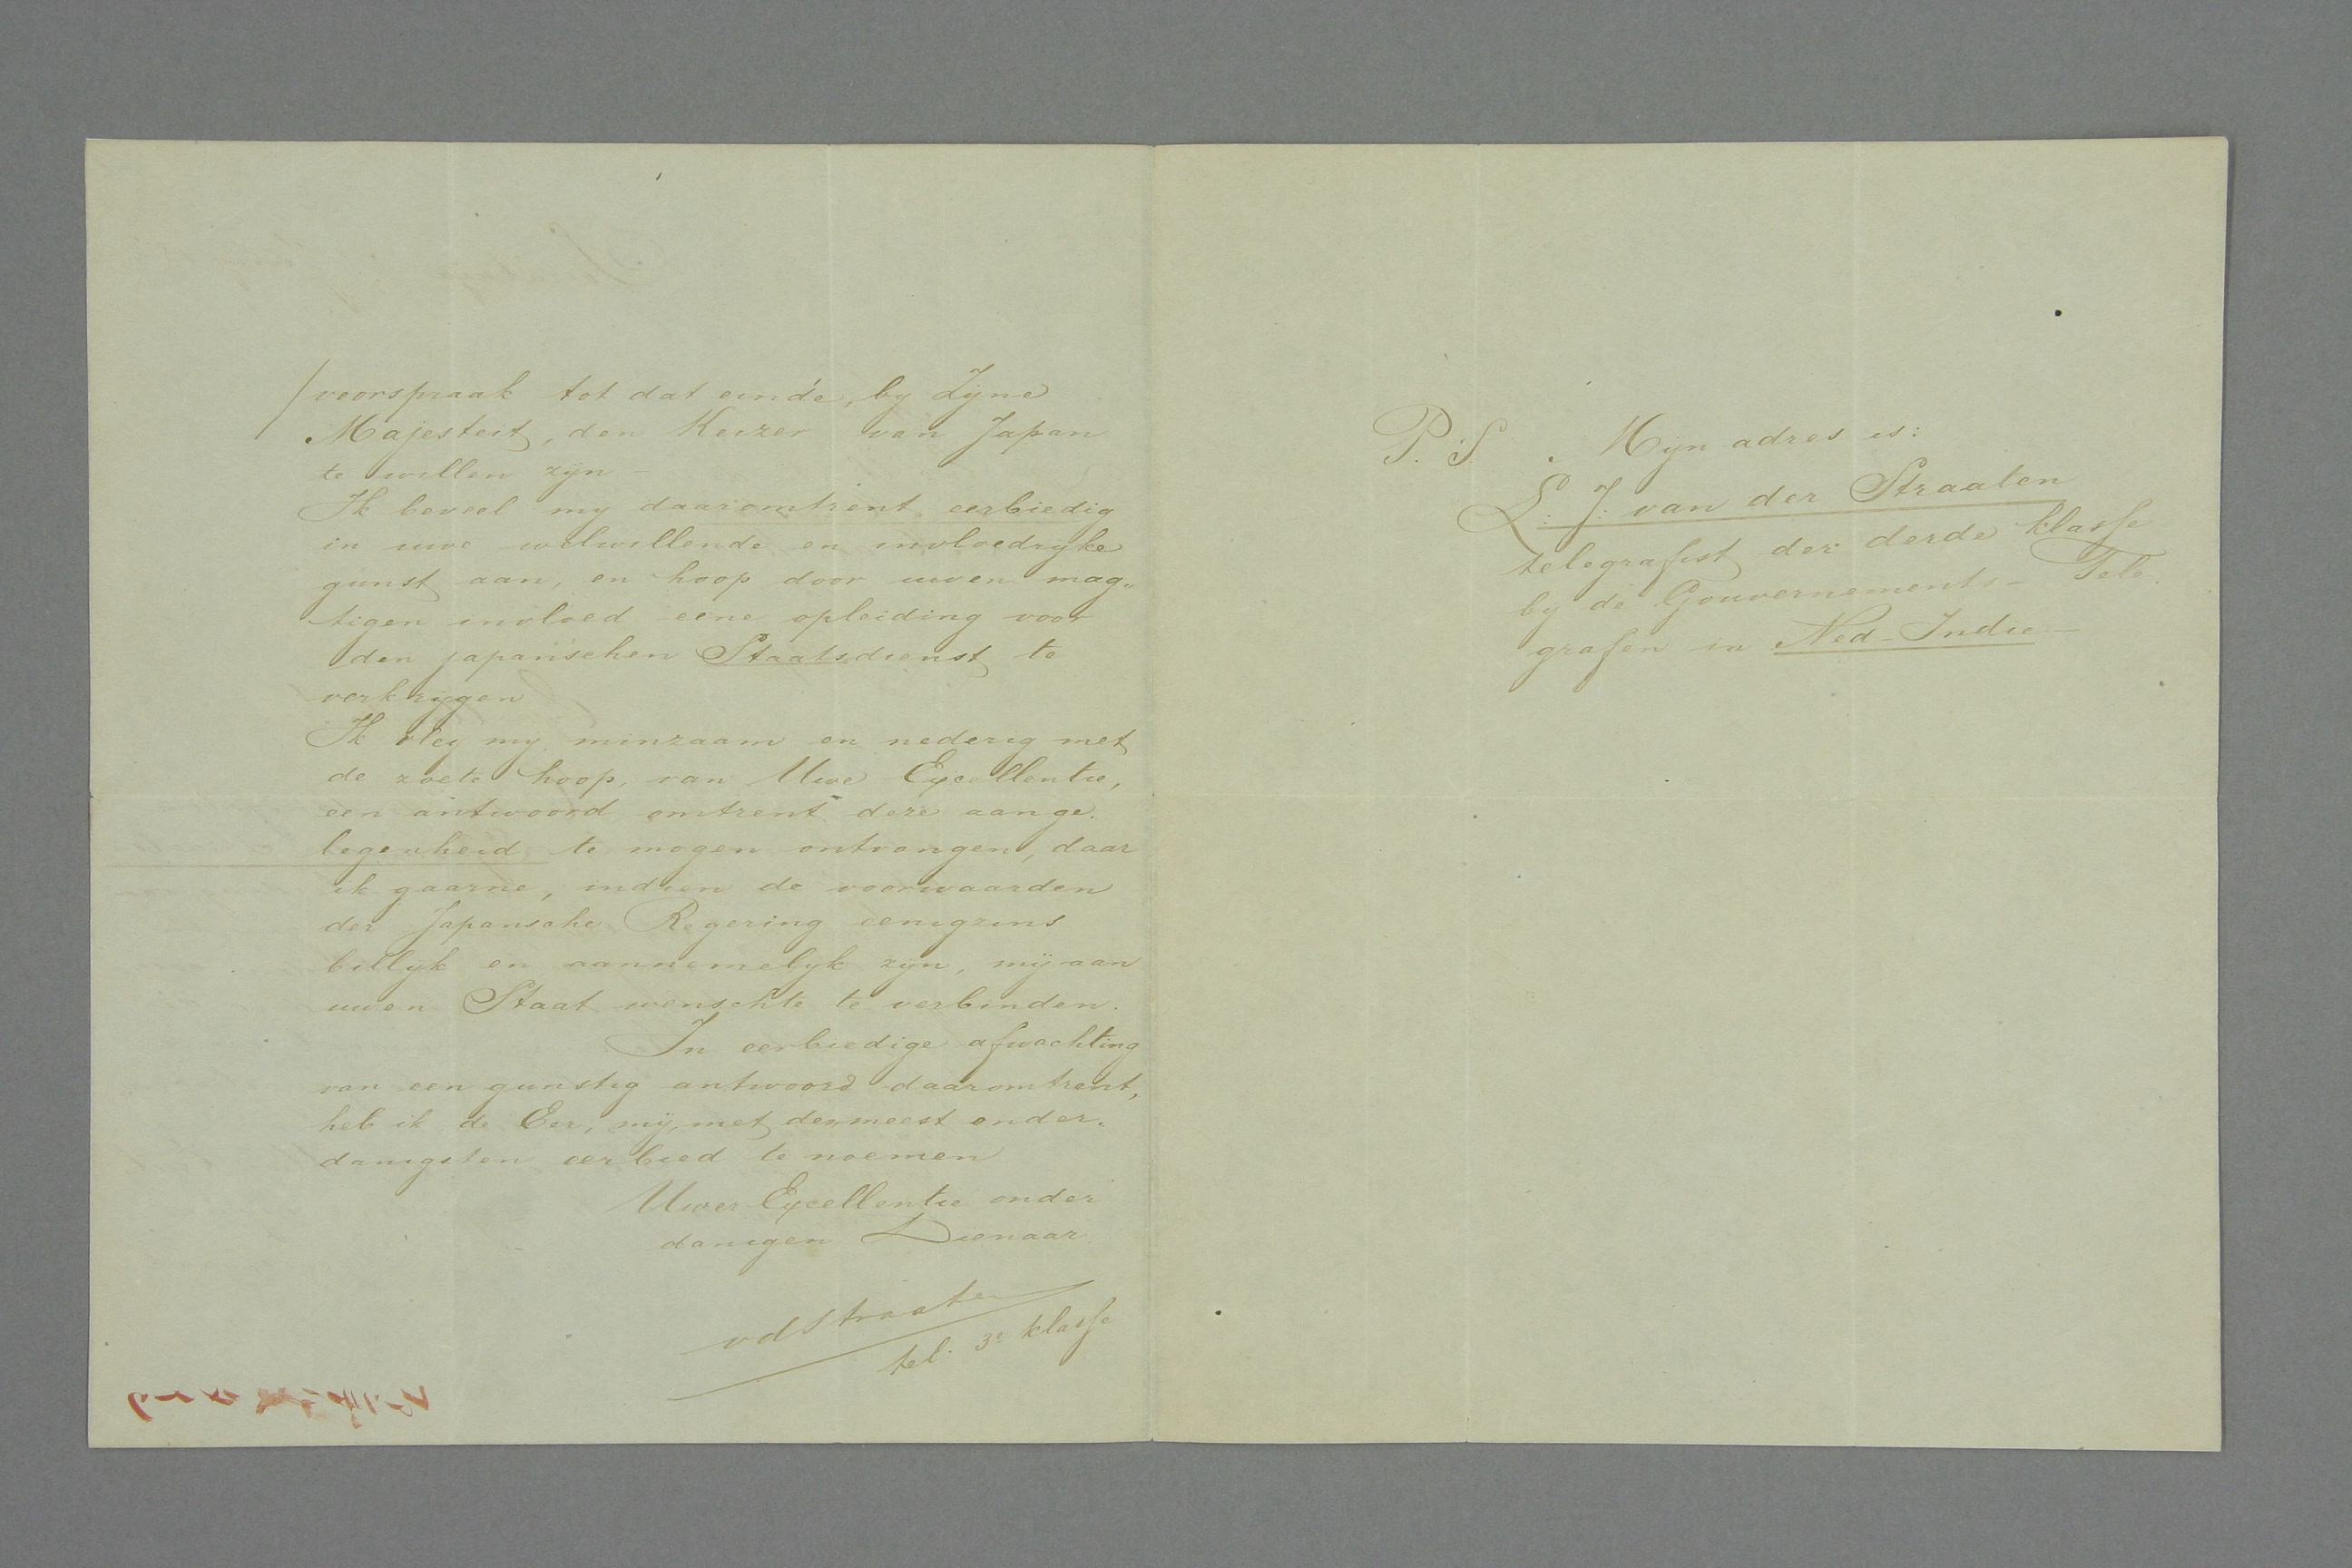 voorspraak tot dat einde, by Zyne
Majesteit, den Keizer van Japan
te willen zijn –
Ik beveel my daaromtrent eerbiedig
in uwe welwillende en invloedryke
gunst aan, en hoop door uwen mag„
tigen invloed eene opleiding voor
den japanschen Staatsdienst te
verkrijgen
Ik vley my minzaam en nederig met
de zoete hoop, van Uwe Excellentie,
een antwoord omtrent deze aange„
legenheid te mogen ontvangen, daar
ik gaarne, indien de voorwaarden
der Japansche Regering eenigzins
billyk en aannemelyk zyn, mij aan
uwen Staat wenschte te verbinden.
In eerbiedige afwachting
van een gunstig antwoord daaromtrent,
heb ik de Eer, mij, met den meest onder„
danigsten eerbied te noemen
Uwer Excellentie onder
danigen Dienaar
vdStraaten
tel. 3e klasse
P.S. Mijn adres is:
L: J: van der Straaten
telegrafist der derde klasse
by de Gouvernements – Tele
grafen in Ned – Indie –